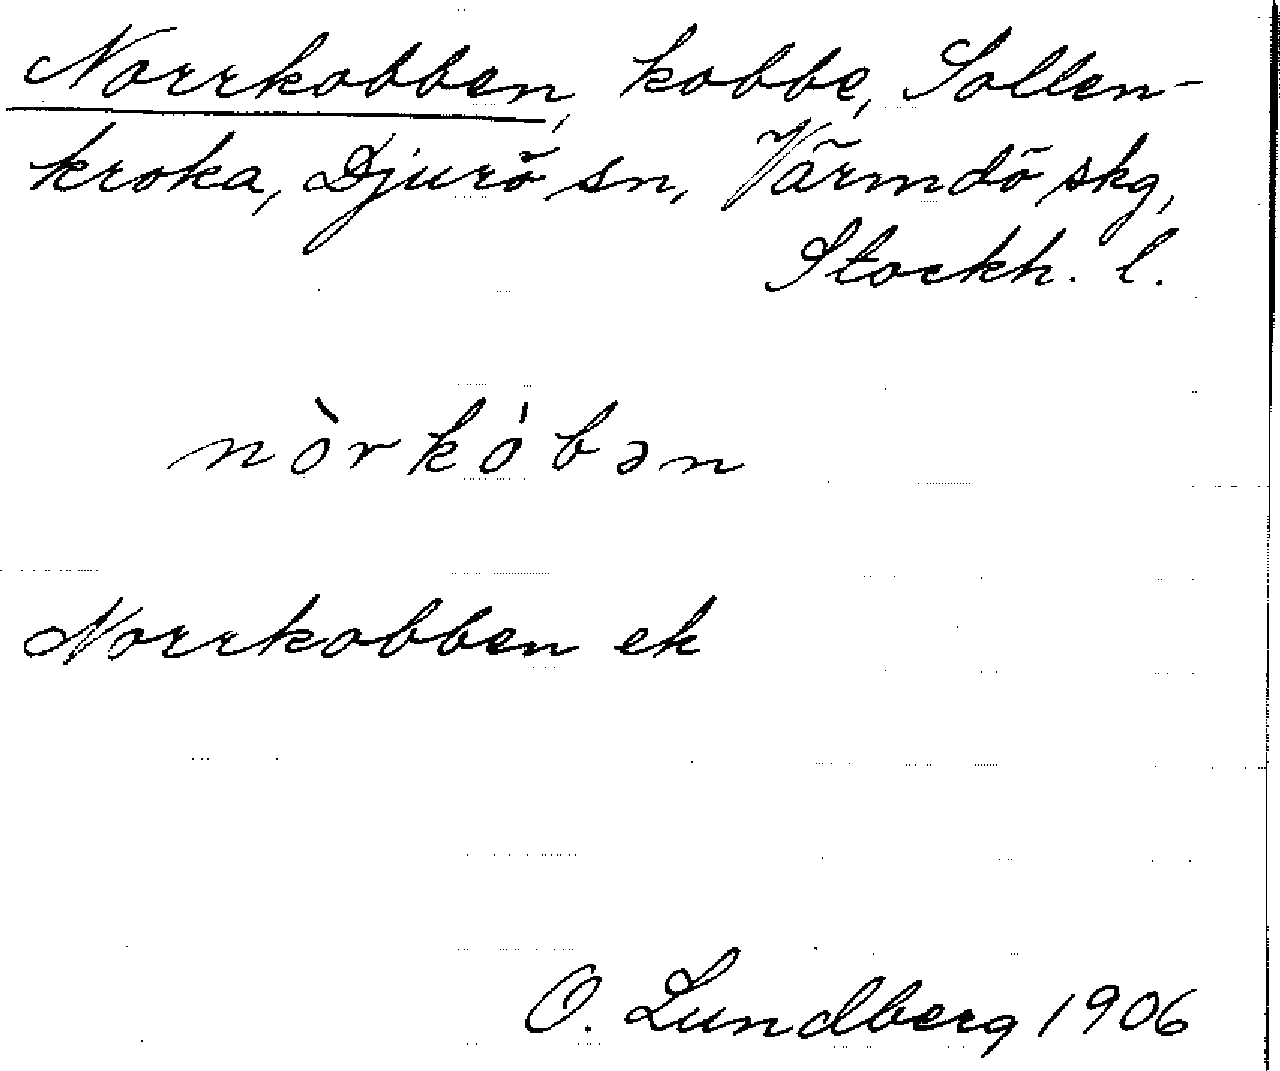 Norrkobben, kobbe, Sollen-
kroka, Djurö sn, Värmdö skg,
Stockh. l.
nòrkòbən
Norrkobben ek
O. Lundberg 1906